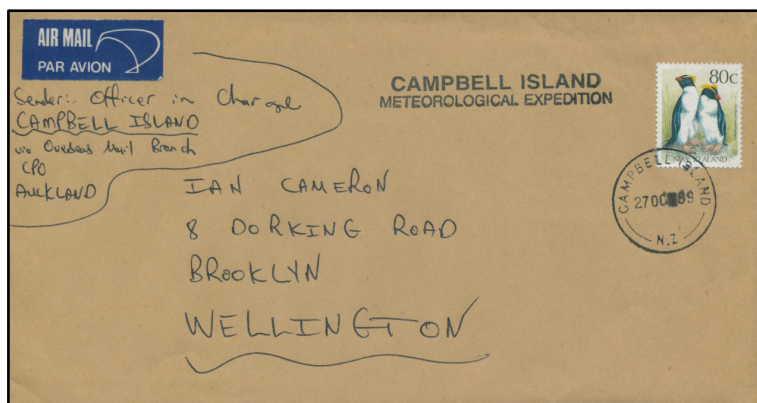 AIR MAIL
PAR AVION
Sender:- Officer in Charge
CAMPBELL ISLAND
via Overseas Mail Branch
CPO
AUCKLAND
CAMPBELL ISLAND
METEOROLOGICAL EXPEDITION
80c
NEW ZEALAND
CAMPBELL ISLAND
27 OC 89
N.Z
IAN CAMERON
8 DORKING ROAD
BROOKLYN
WELLINGTON